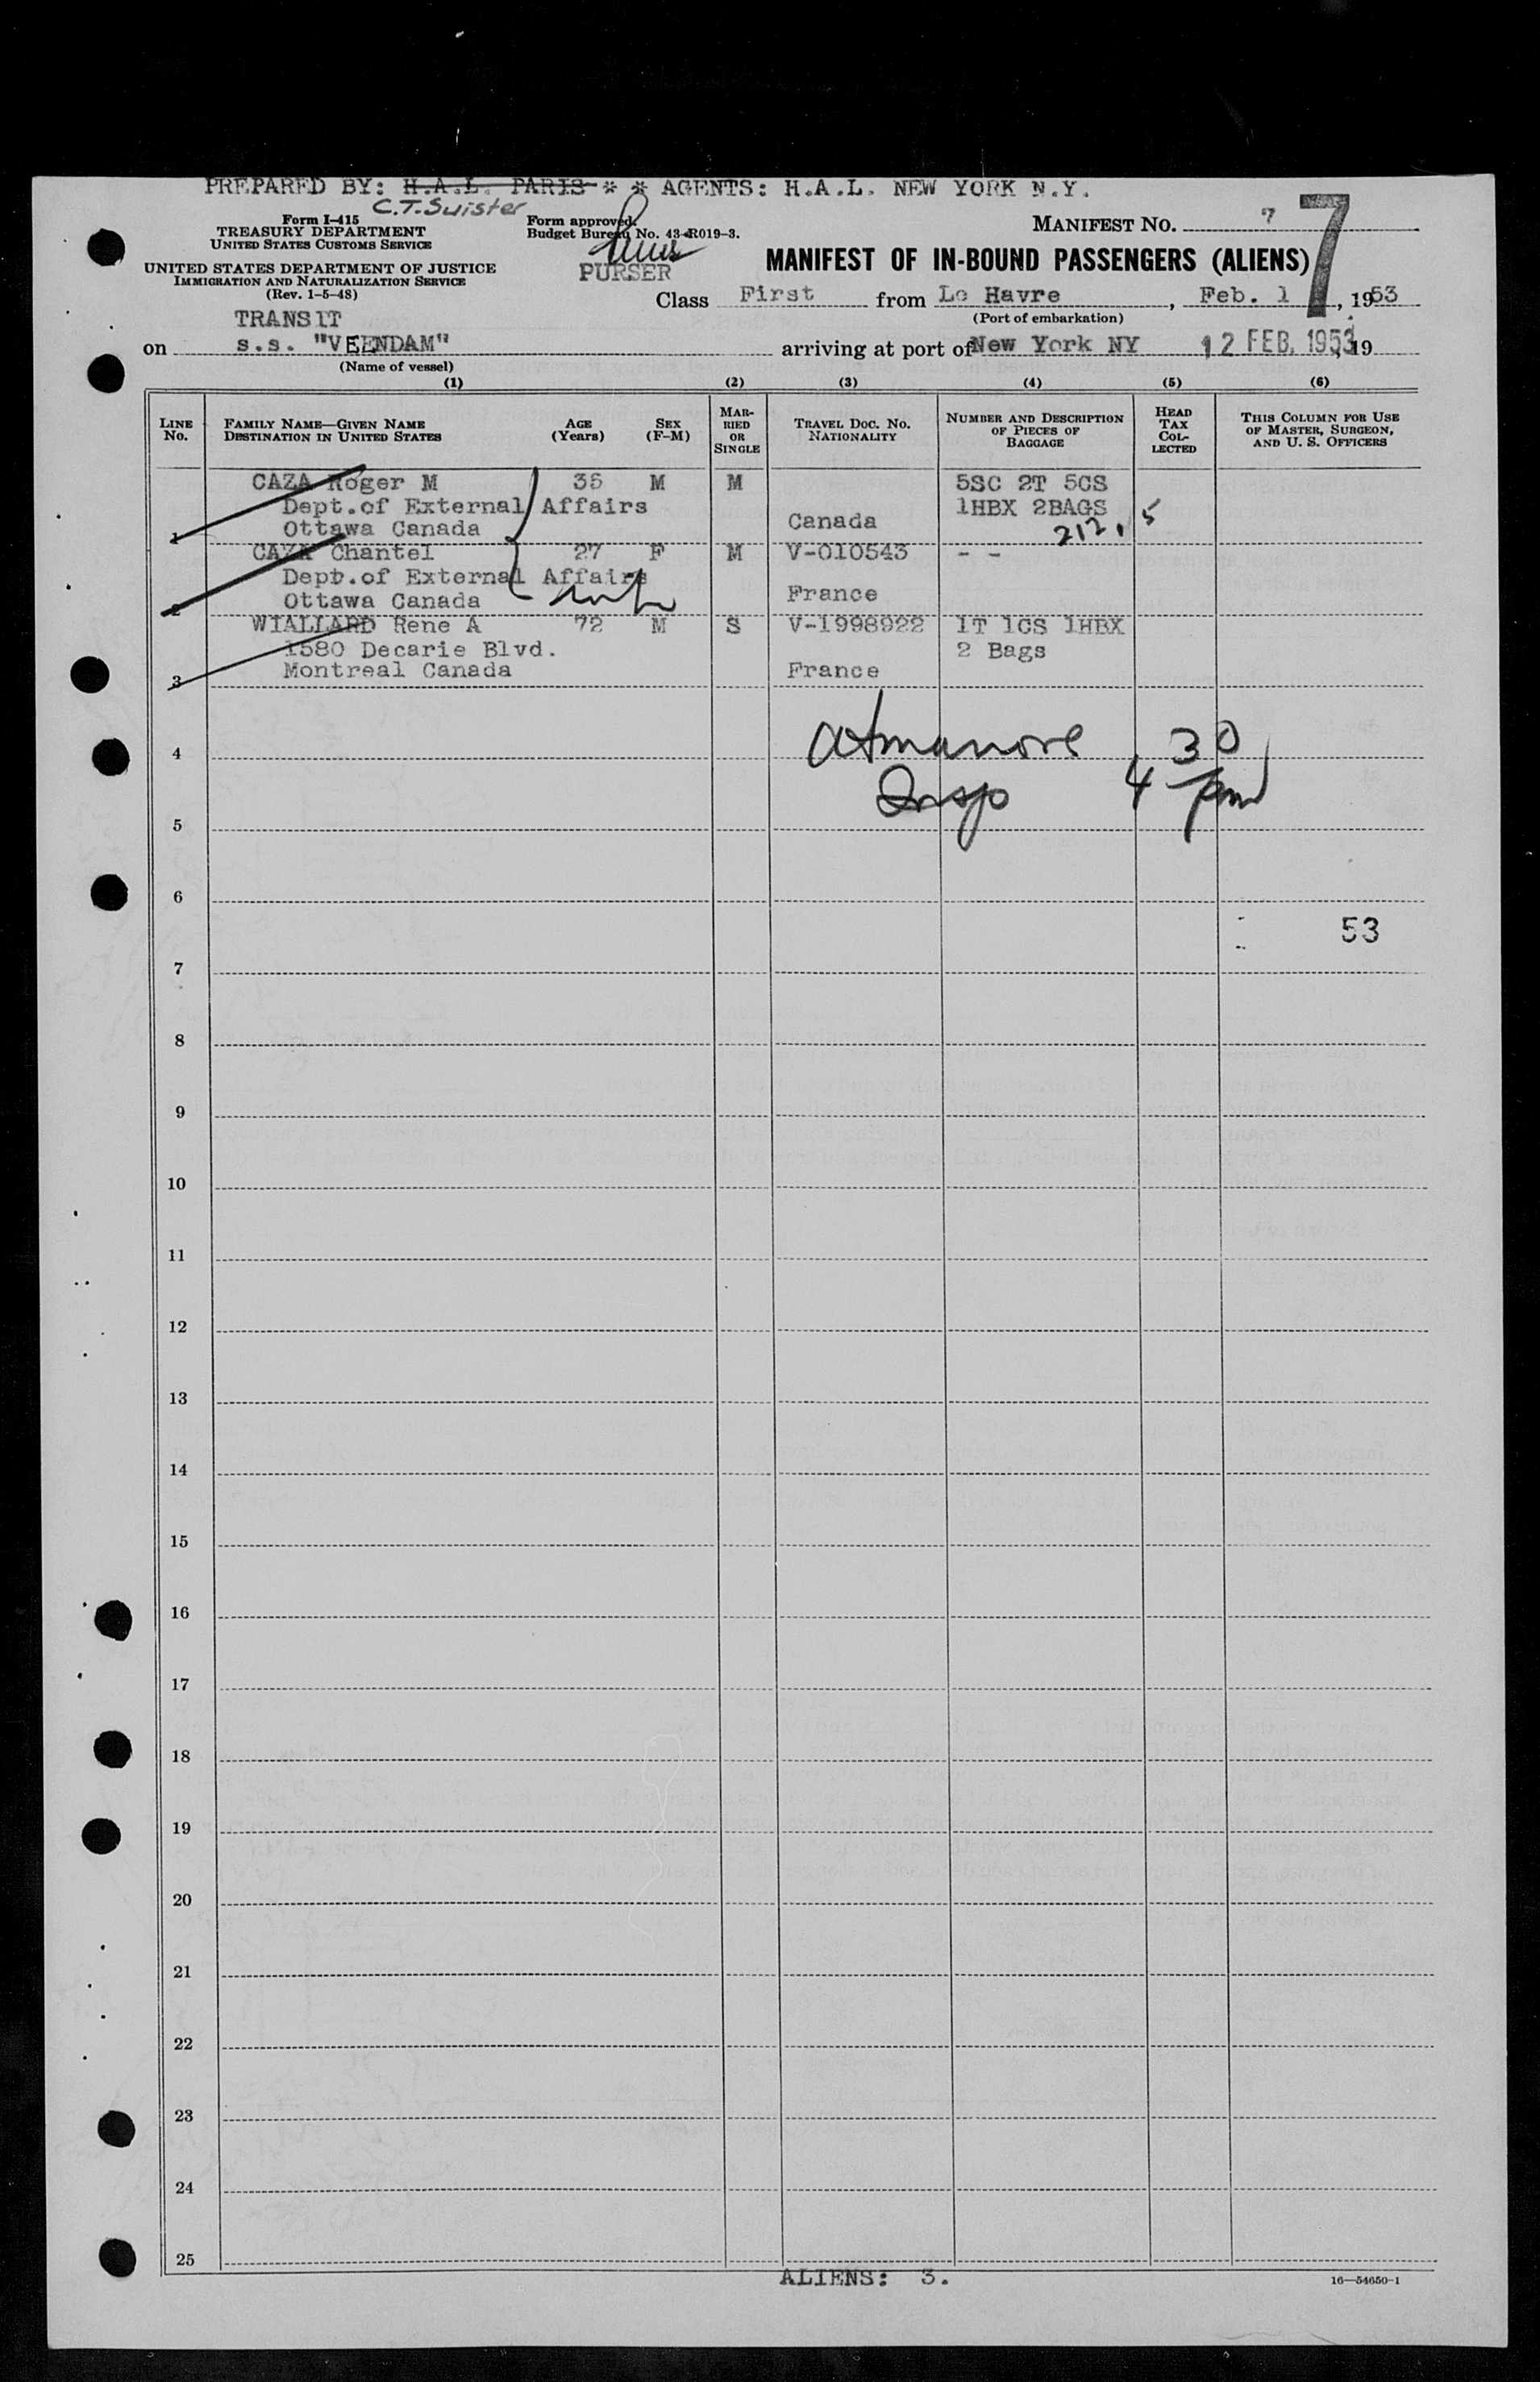 PREPARED BY: H.A.L. PARIS * * AGENTS: H.A.L. NEW YORK N.Y.
C.T. Suister
Form I-415
TREASURY DEPARTMENT
UNITED STATES CUSTOMS SERVICE
Form approved.
Budget Bureau No. 43-R019-3.
PURSER
MANIFEST NO. 7
7
UNITED STATES DEPARTMENT OF JUSTICE
IMMIGRATION AND NATURALIZATION SERVICE
(Rev. 1-5-48)
MANIFEST OF IN-BOUND PASSENGERS (ALIENS)
Class First from Le Havre, Feb. 1, 1953
(Port of embarkation)
TRANSIT
on s.s. "VEENDAM" arriving at port of New York NY 12 FEB. 1953 19
(Name of vessel)
(1) (2) (3) (4) (5) (6)
LINE No. FAMILY NAME—GIVEN NAME DESTINATION IN UNITED STATES AGE (Years) SEX (F-M) MARRIED OR SINGLE TRAVEL DOC. NO. NATIONALITY NUMBER AND DESCRIPTION OF PIECES OF BAGGAGE HEAD TAX COLLECTED THIS COLUMN FOR USE OF MASTER, SURGEON, AND U. S. OFFICERS
CAZA Roger M 35 M M 5SC 2T 5CS
Dept.of External Affairs 1HBX 2BAGS
1 Ottawa Canada Canada 212.15
CAZA Chantel 27 F M V-010543 - -
Dept.of External Affairs
2 Ottawa Canada France
WIALLARD Rene A 72 M S V-1998922 1T 1CS 1HBX
1580 Decarie Blvd. 2 Bags
3 Montreal Canada France
4
Insp 4 30 pm
5
6
53
7
8
9
10
11
12
13
14
15
16
17
18
19
20
21
22
23
24
25
ALIENS: 3.
16—54650-1